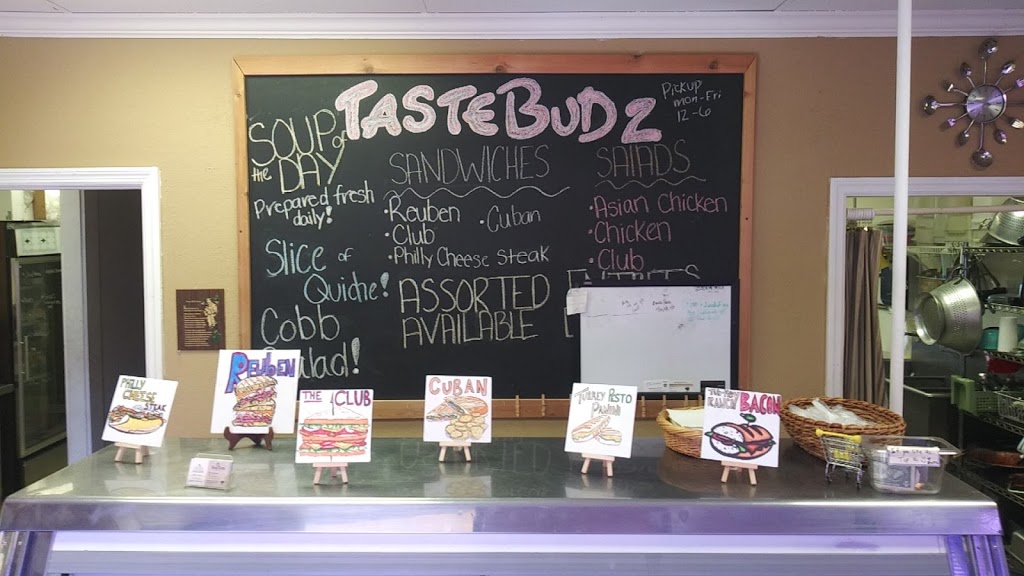 TASTEBUDZ
Pickup
mon-Fri
12-6
SOUP of
the DAY
Prepared fresh
daily!
Slice of
Quiche!
Cobb
Salad!
SANDWICHES
• Reuben
• Cuban
• Club
• Philly Cheese Steak
ASSORTED
AVAILABLE
SALADS
• Asian Chicken
• Chicken
• Club
PHILLY
CHEESE
STEAK
REUBEN
THE CLUB
CUBAN
TURKEY PESTO
PANINI
RANCH
BACON